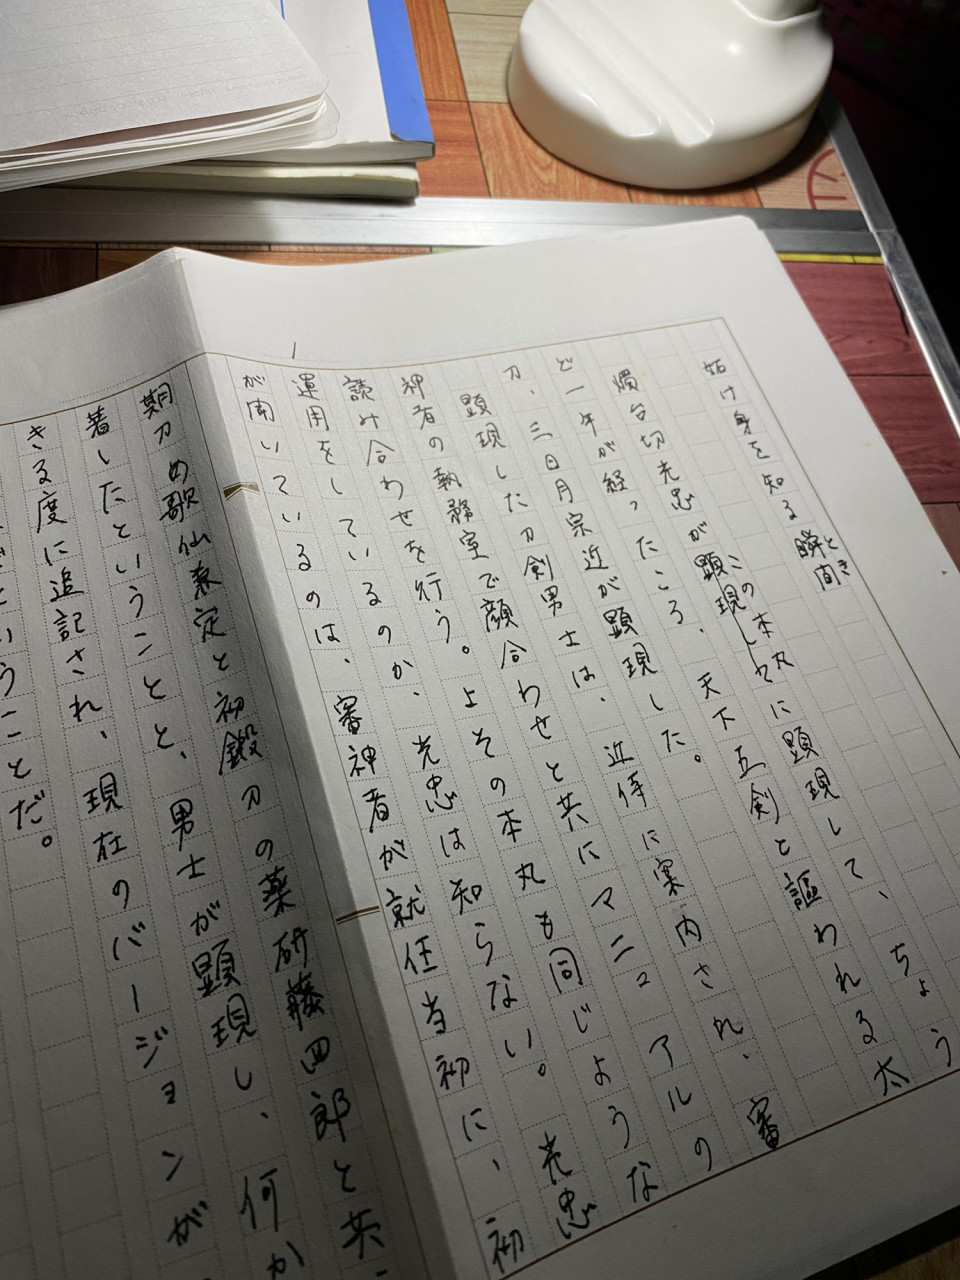 妬け身を知る瞬間
とき
燭台切光忠が顕現しこの本丸に顕現して、ちょう
ど一年が経ったころ、天下五剣と謳われる太
刀、三日月宗近が顕現した。
顕現した刀剣男士は、近侍に案内され、審
神者の執務室で顔合わせと共にマニュアルの
読み合わせを行う。よその本丸も同じような
運用をしているのか、光忠は知らない。光忠
が聞いているのは、審神者が就任当初に、初
期刀の歌仙兼定と初鍛刀の薬研藤四郎と共
着したということと、男士が顕現し、何か
きる度に追記され、現在のバージョンが
ということだ。